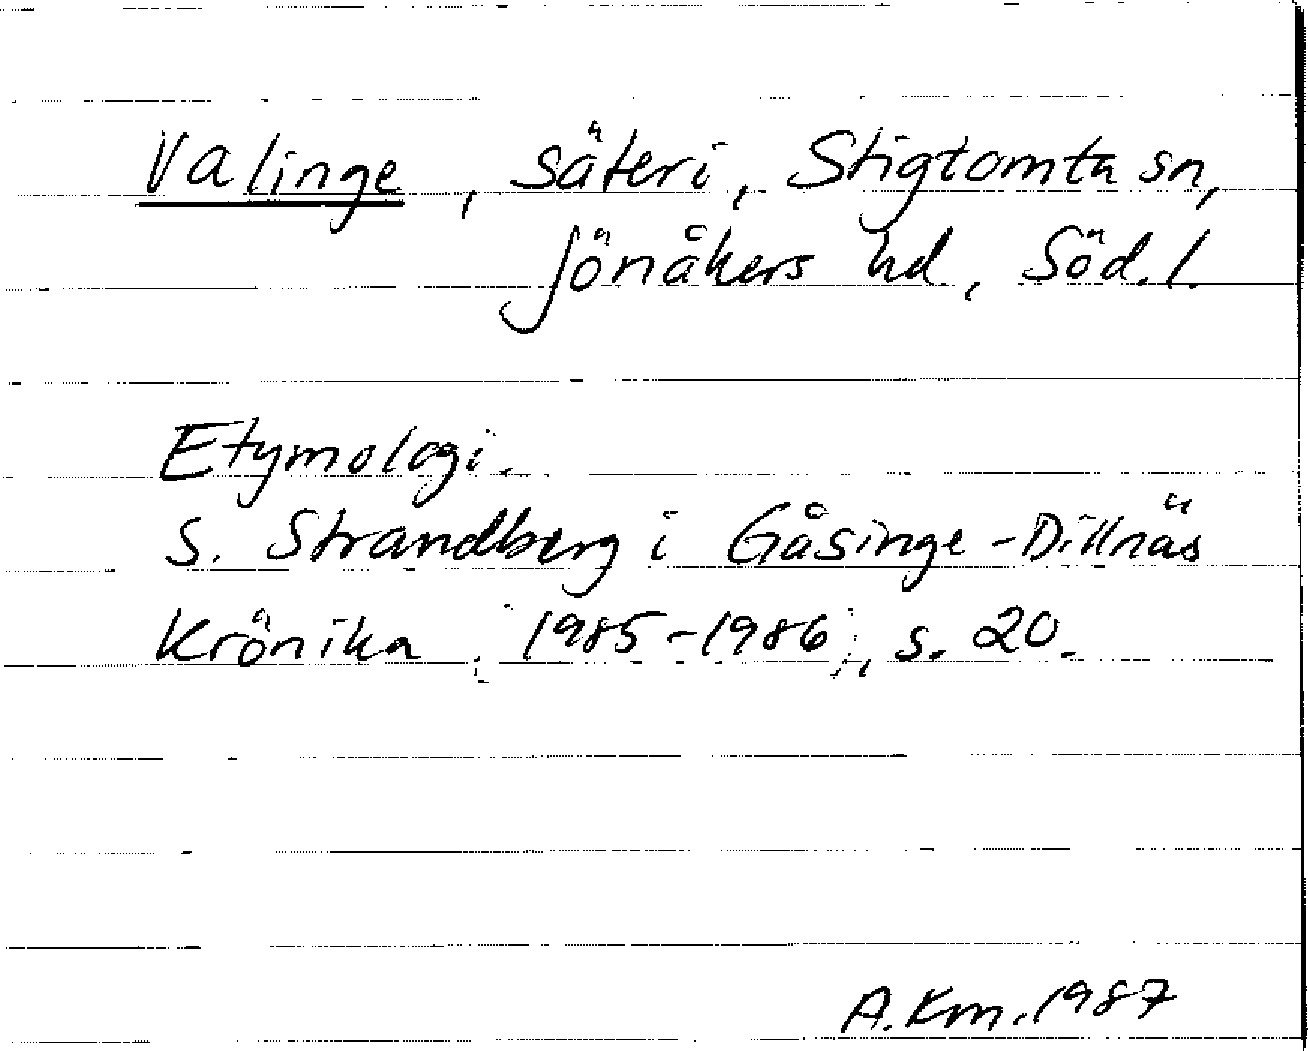 Valinge, säteri, Stigtomta sn,
Jönåkers hd, Söd.l.
Etymologi.
S. Strandberg i Gåsinge-Dillnäs
Krönika 1985-1986, s. 20.
A.Km.1987